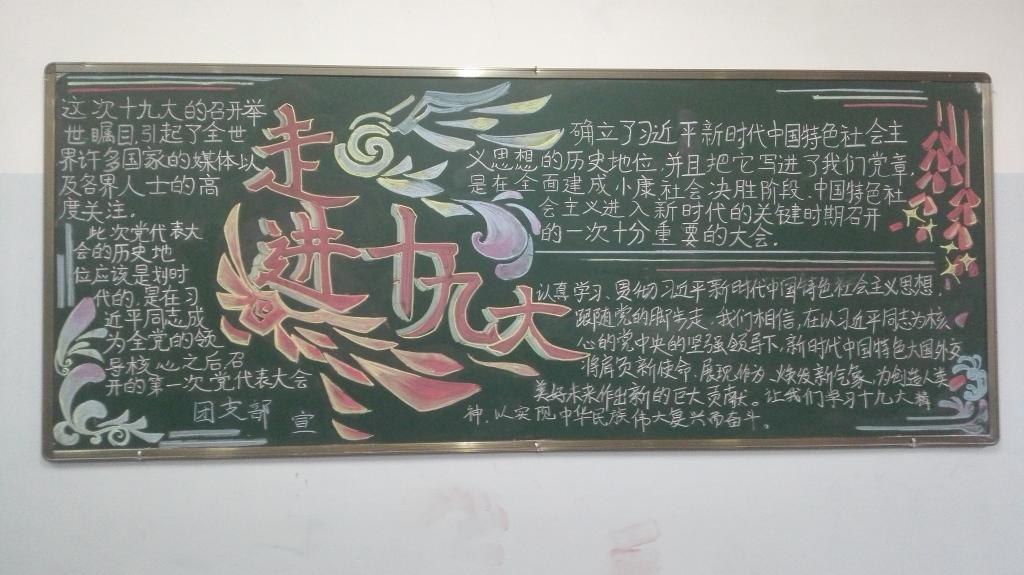 这次十九大的召开举
世瞩目,引起了全世
界许多国家的媒体以
及各界人士的高
度关注.
此次党代表大
会的历史地
位应该是划时
代的,是在习
近平同志成
为全党的领
导核心之后召
开的第一次党代表大会
团支部 宣
走进十九大
确立了习近平新时代中国特色社会主
义思想的历史地位,并且把它写进了我们党章,
是在全面建成小康社会决胜阶段、中国特色社
会主义进入新时代的关键时期召开
的一次十分重要的大会.
认真学习、贯彻习近平新时代中国特色社会主义思想,
跟随党的脚步走,我们相信,在以习近平同志为核
心的党中央的坚强领导下,新时代中国特色大国外交
将肩负新使命,展现作为、焕发新气象,为创造人类
美好未来作出新的巨大贡献。让我们学习十九大精
神,以实现中华民族伟大复兴而奋斗。